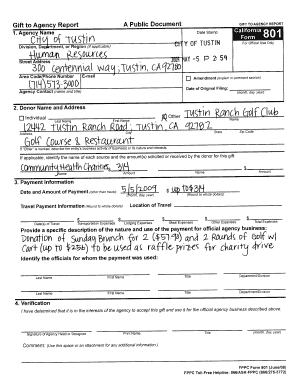 Gift to Agency Report
A Public Document
GIFT TO AGENCY REPORT
1. Agency Name
City of Tustin
Date Stamp
California
Form 801
Division, Department, or Region (if applicable)
CITY OF TUSTIN
For Official Use Only
Human Resources
Street Address
300 Centennial Way, Tustin, CA 92780
MAY -5 P 2:59
Area Code/Phone Number
E-mail
(714) 573-3000
Amendment (explain in comment section)
Agency Contact (name and title)
Date of Original Filing:
(month, day, year)
2. Donor Name and Address
Individual
Other Tustin Ranch Golf Club
Last Name
First Name
Name
12442 Tustin Ranch Road, Tustin, CA 92782
Address
City
State
Zip Code
Golf Course & Restaurant
If "Other" is marked, describe the entity's business activity (if business) or its nature and interests.
If applicable, identify the name of each source and the amount(s) solicited or received by the donor for this gift:
Community Health Charities, 314
Name
Amount
Name
Amount
3. Payment Information
Date and Amount of Payment (other than travel)
5/5/2009
$ up to $314
(month, day, year)
(Round to whole dollars)
Travel Payment Information (Round to whole dollars)
Location of Travel
Date(s) of Travel
Transportation Expenses
Lodging Expenses
Meal Expenses
Other Expenses
Total Expenses
Provide a specific description of the nature and use of the payment for official agency business:
Donation of Sunday Brunch for 2 ($57.90) and 2 Rounds of Golf w/
Cart (up to $256) to be used as raffle prizes for charity drive
Identify the officials for whom the payment was used:
Last Name
First Name
Title
Department/Division
Last Name
First Name
Title
Department/Division
4. Verification
I have determined that it is in the interests of the agency to accept this gift and use it for the official agency business described above.
Signature of Agency Head or Designee
Print Name
Title
(month, day, year)
Comment: (Use this space or an attachment for any additional information.)
FPPC Form 801 (June/08)
FPPC Toll-Free Helpline: 866/ASK-FPPC (866/275-3772)